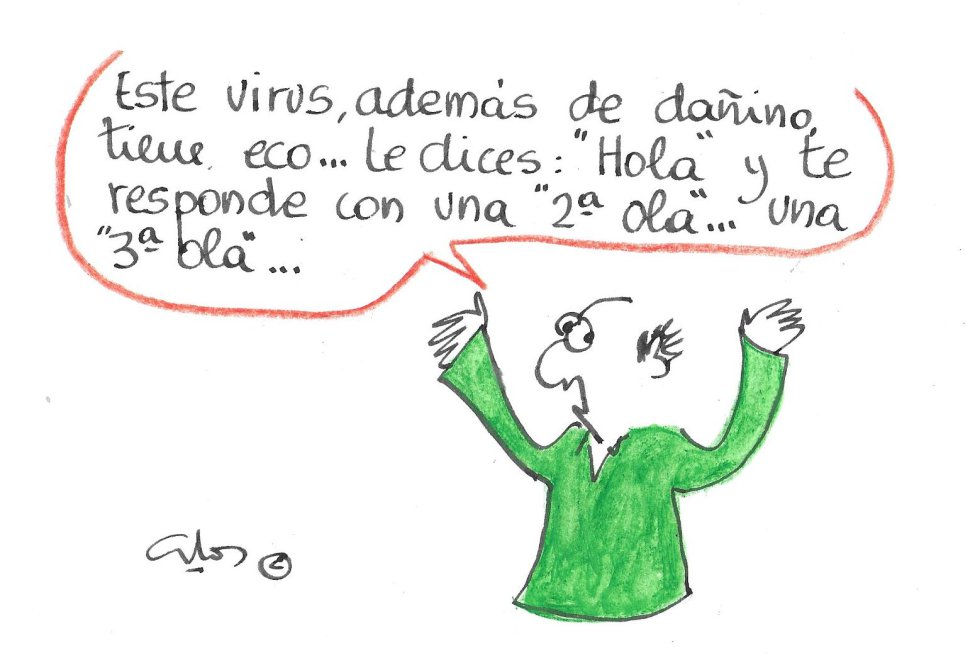 Este virus, además de dañino,
tiene eco... Le dices: "Hola" y te
responde con una "2ª ola"... una
"3ª ola"...
©